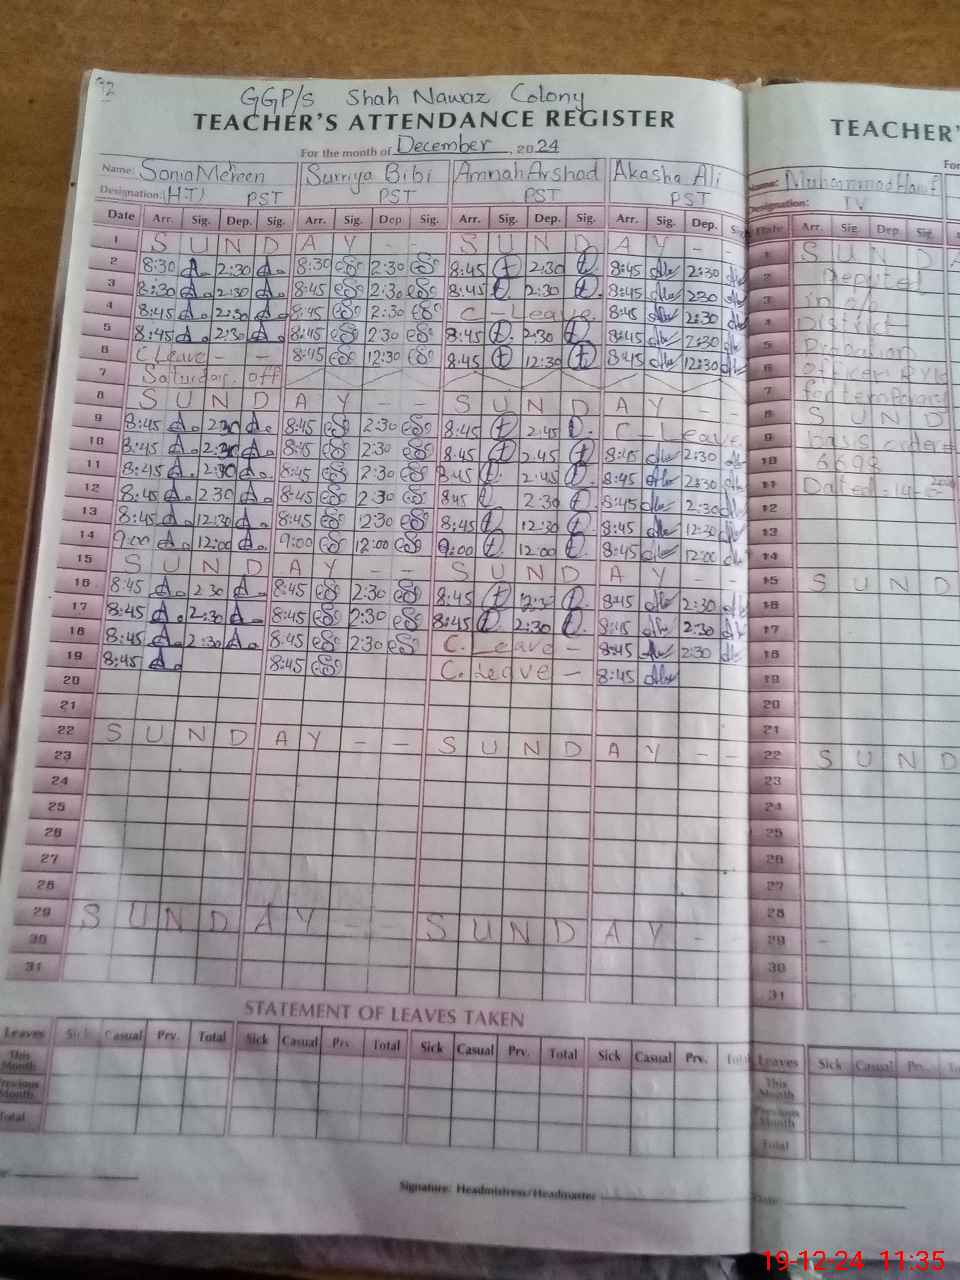 92
GGP/S Shah Nawaz Colony
TEACHER'S ATTENDANCE REGISTER
For the month of December, 2024
Name: Sonia Mehreen Surriya Bibi Amnah Arshad Akasha Ali
Designation: (H.T) PST PST PST PST
Date Arr. Sig. Dep. Sig. Arr. Sig. Dep Sig. Arr. Sig. Dep. Sig. Arr. Sig. Dep. Sig.
1 S U N D A Y - - S U N D A Y -
2 8:30 2:30 8:30 2:30 8:45 2:30 8:45 2:30
3 8:30 2:30 8:45 2:30 8:45 2:30 8:45 2:30
4 8:45 2:30 8:45 2:30 C - Leave. 8:45 2:30
5 8:45 2:30 8:45 2:30 8:45 2:30 8:45 2:30
6 C Leave - - 8:45 12:30 8:45 12:30 8:45 12:30
7 Saturday. off
8 S U N D A Y - - S U N D A Y - -
9 8:45 2:30 8:45 2:30 8:45 2:45 C - Leave
10 8:45 2:30 8:45 2:30 8:45 2:45 8:45 2:30
11 8:45 2:30 8:45 2:30 8:45 2:45 8:45 2:30
12 8:45 2:30 8:45 2:30 8:45 2:30 8:45 2:30
13 8:45 12:30 8:45 12:30 8:45 12:30 8:45 12:30
14 9:00 12:00 9:00 12:00 9:00 12:00 8:45 12:00
15 S U N D A Y - - S U N D A Y - -
16 8:45 2:30 8:45 2:30 8:45 2:30 8:45 2:30
17 8:45 2:30 8:45 2:30 8:45 2:30 8:45 2:30
18 8:45 2:30 8:45 2:30 C. Leave - 8:45 2:30
19 8:45 8:45 C. Leave - 8:45
20
21
22 S U N D A Y - - S U N D A Y - -
23
24
25
26
27
28
29 S U N D A Y - - S U N D A Y -
30
31
STATEMENT OF LEAVES TAKEN
Leaves Sick Casual Prv. Total Sick Casual Prv. Total Sick Casual Prv. Total Sick Casual Prv. Total
This Month
Previous Month
Total
Signature: Headmistress/Headmaster
TEACHER'
For
Name: Muhammad Hanif
Designation: TV
Date Arr. Sig. Dep Sig.
1 S U N D
2 Deputed
3 in o/o
4 District
5 Education
6 officer
7 for temporary
8 S U N D
9 Days order
10 6698
11 Dated. 14-
12
13
14
15 S U N D
16
17
18
19
20
21
22 S U N D
23
24
25
26
27
28
29 -
30
31
Leaves Sick Casual Prv.
This Month
Previous Month
Total
Date:
19-12-24 11:35